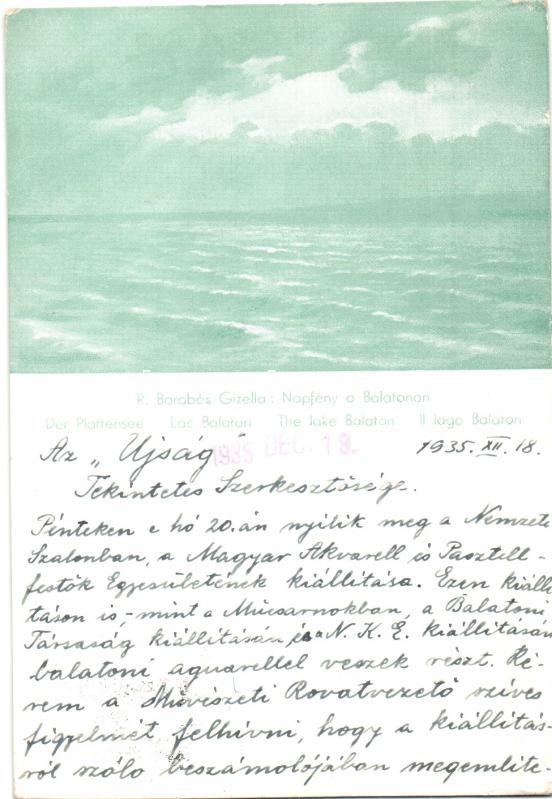 R. Barabés Gizella : Napfény a Balatonon
Der Plattensee Lac Balaton The lake Balaton Il lago Balaton
Az „Ujság" 1935. XII. 18.
1935 DEC. 19.
Tekintetes Szerkesztősége.
Pénteken e hó 20.án nyilik meg a Nemzeti
Szalonban, a Magyar Akvarell és Pasztell-
festők Egyesületének kiállitása. Ezen kiálli
táson is,- mint a Műcsarnokban, a Balatoni
Társaság kiállitásán és a N. K. E. kiállitásán
balatoni aquarellel veszek részt. Ké-
rem a Művészeti Rovatvezető szives
figyelmét felhivni, hogy a kiállitás-
ról szóló beszámolójában megemlite-